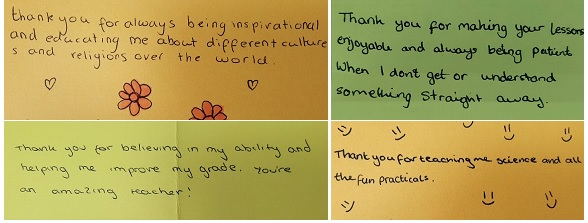 thank you for always being inspirational
and educating me about different culture
s and religions over the world.
Thank you for making your lessons
enjoyable and always being patient
When I dont get or understand
something straight away.
Thank you for believing in my ability and
helping me improve my grade. You're
an amazing teacher!
Thank you for teaching me science and all
the fun practicals.